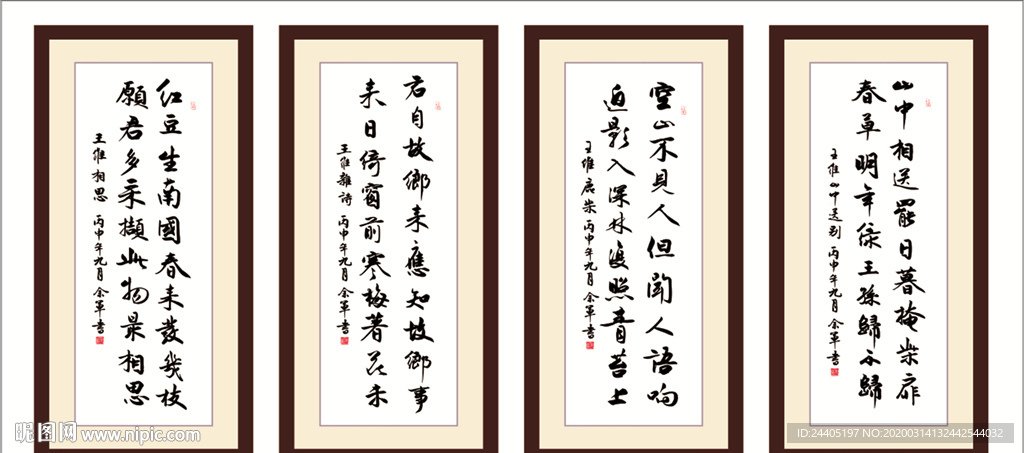 红豆生南國春来發幾枝
願君多采擷此物最相思
王維相思 丙申年九月余軍書
君自故鄉来應知故鄉事
来日倚窗前寒梅著花未
王維雜詩 丙申年九月余軍書
空山不見人但聞人語响
返影入深林復照青苔上
王維鹿柴 丙申年九月余軍書
山中相送罷日暮掩柴扉
春草明年绿王孫歸不歸
王維山中送别 丙申年九月余軍書
昵图网 www.nipic.com
ID:24405197 NO:20200314132442544032